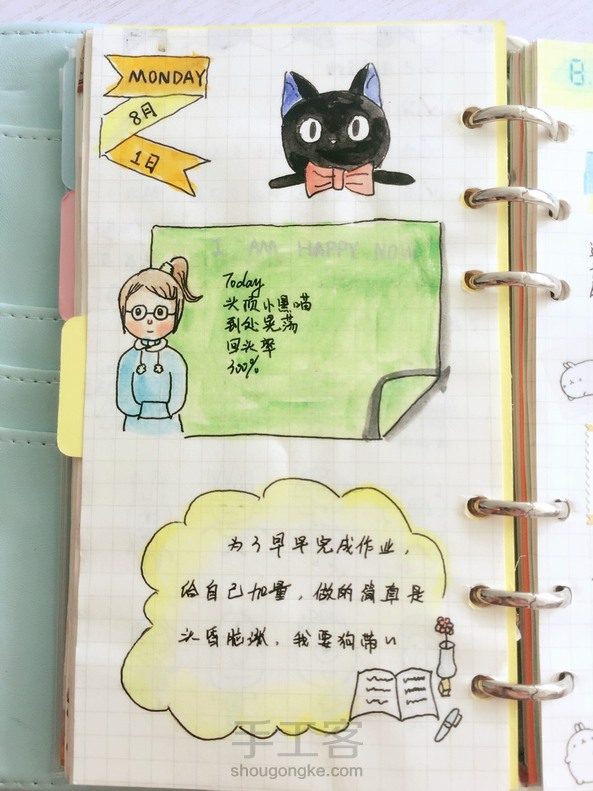 MONDAY
8月
1日
I AM HAPPY NOW
Today
头顶小黑喵
到处晃荡
回头率
300%
为了早早完成作业，
给自己加量，做的简直是
头昏脑涨，我要狗带~
手工客
shougongke.com
8.